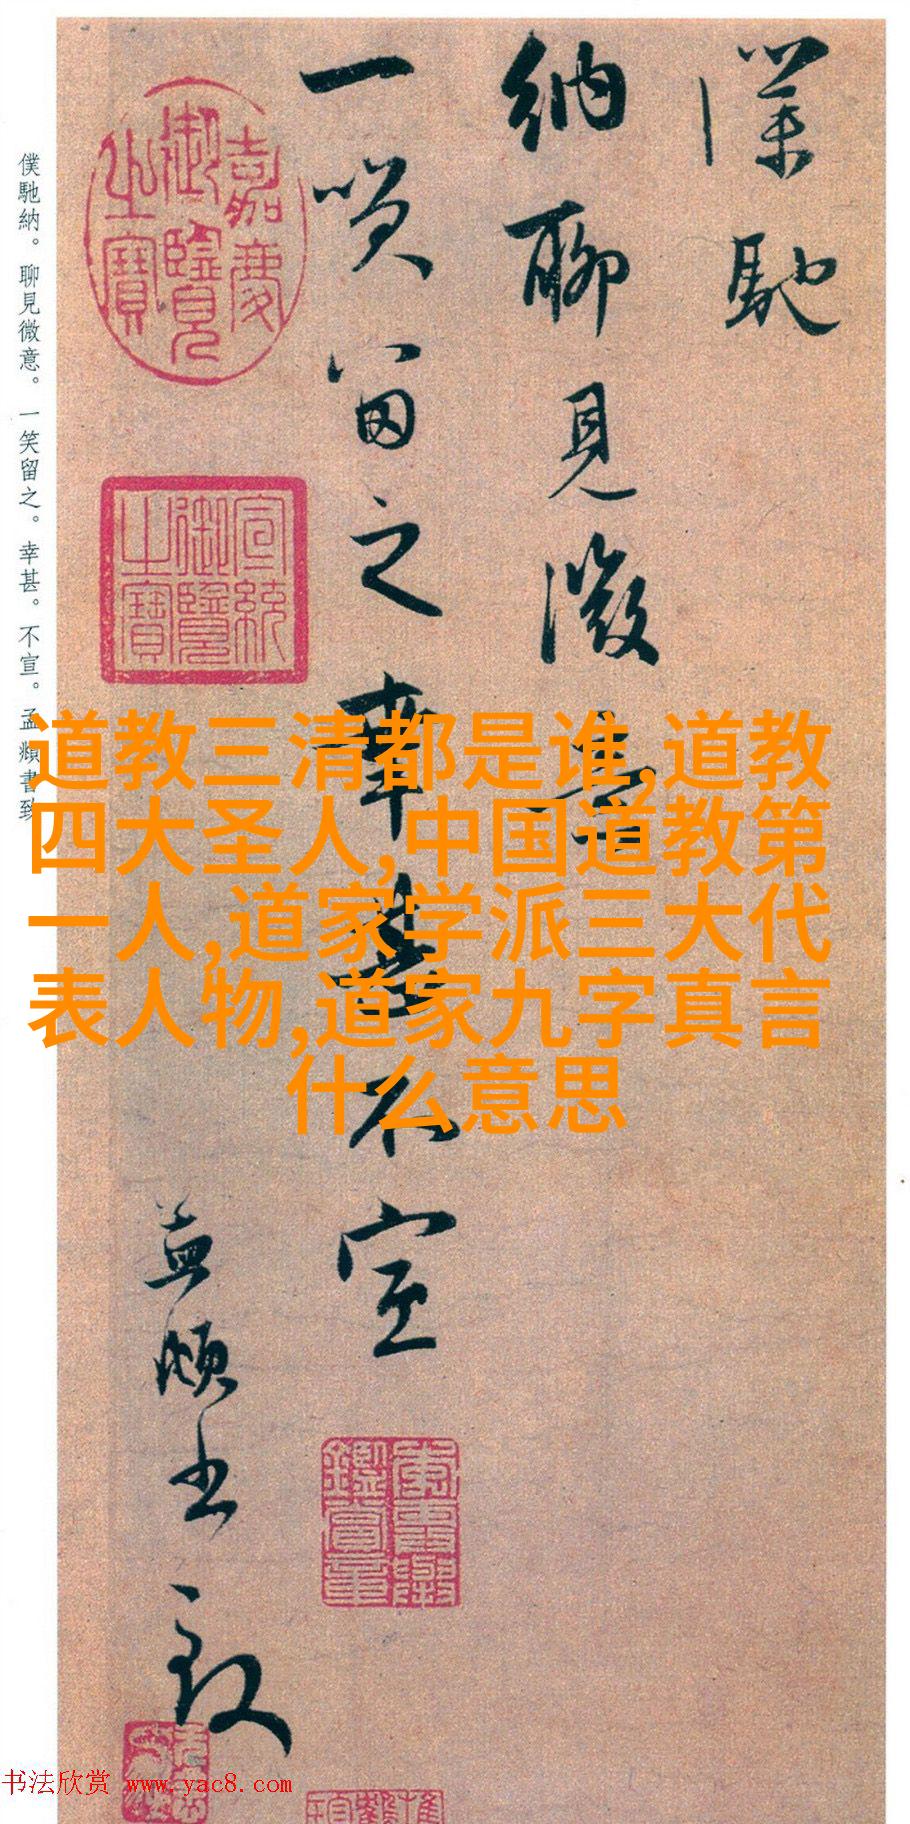 僕馳
納聊見微意
一笑留之幸甚不宣
孟頫書致
嘉慶御覽之寶
宣統御覽之寶
僕馳納。聊見微意。一笑留之。幸甚。不宣。孟頫書致
道教三清都是谁,道教
四大圣人,中国道教第
一人,道家学派三大代
表人物,道家九字真言
什么意思
书法欣赏 www.yac8.com